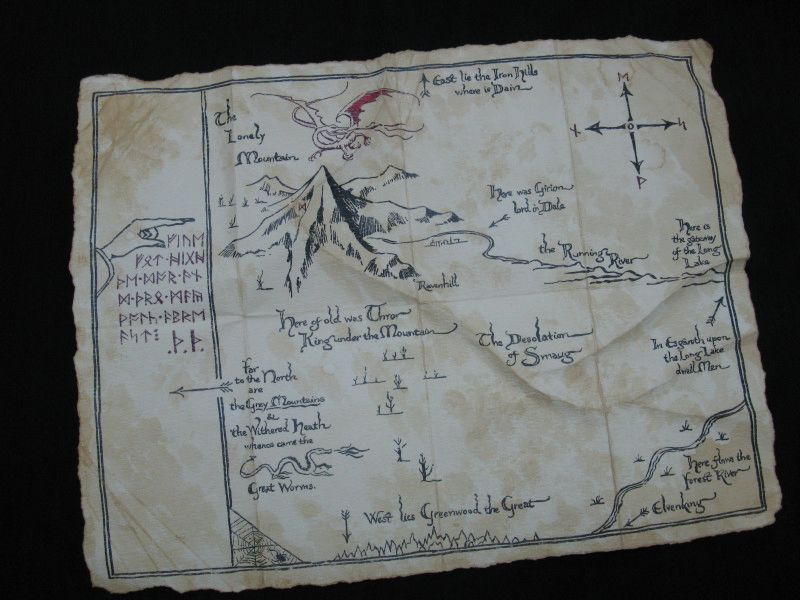 East lie the Iron Hills
where is Dain
The
Lonely
Mountain
ᛖ
ᚾ
ᛋ
ᚹ
ᛞ
Here was Girion
lord in Dale
Here is
the gateway
of the Long
Lake
the Running River
Ravenhill
ᚠᛁᚢᛖ
ᚠᚩᛏ·ᚻᛁᚷᚻ
ᚦᛖ·ᛞᚩᚱ·ᚪᚾ
ᛞ·ᚦᚱᛟ·ᛗᚪᚣ
ᛏ:
.ᚦ.ᚦ.
Here of old was Thror
King under the Mountain
The Desolation
of Smaug
In Esgaroth upon
the Long Lake
dwell Men
Far
to the North
are
the Grey Mountains
&
the Withered Heath
whence came the
Great Worms.
Here flows the
forest River
Elvenking
West lies Greenwood the Great